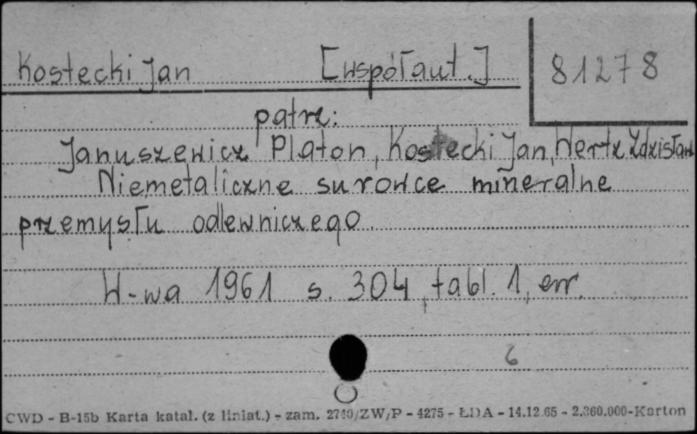 Kostecki Jan [współaut.] 81278
patrz:
Januszewicz Platon, Kostecki Jan, Wertz Zdzisław
Niemetaliczne surowce mineralne
przemysłu odlewniczego.
W-wa 1961 s. 304, tabl. 1, err.
6
CWD - B-15b Karta katal. (z liniat.) - zam. 2740/ZW/P - 4275 - ŁDA - 14.12.65 - 2.360.000-Karton